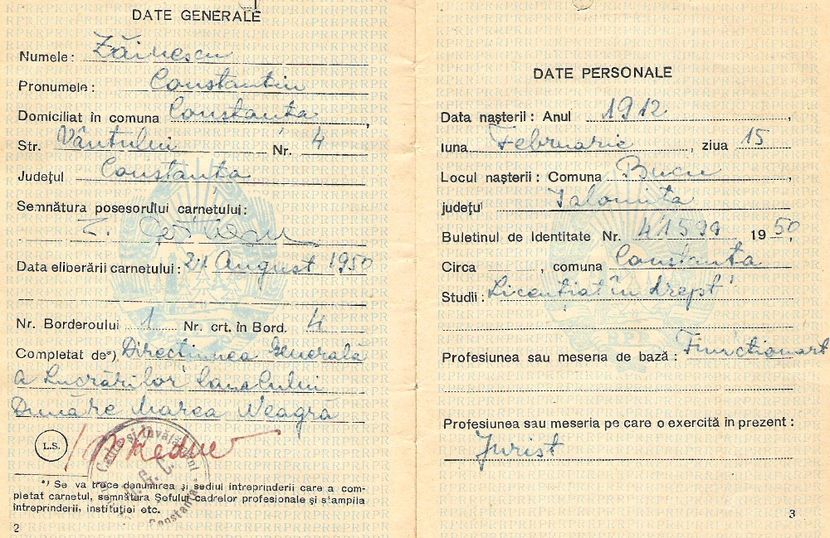 DATE GENERALE
Numele: Zăinescu
Pronumele: Constantin
Domiciliat în comuna Constanța,
Str. Vântului Nr. 4
Județul Constanta
Semnătura posesorului carnetului:
Data eliberării carnetului: 24 August 1950
Nr. Borderoului 1 Nr. crt. în Bord. 4
Completat de*) Directiunea Generală
a Lucrărilor Canalului
Dunăre Marea Neagră
L.S.
*) Se va trece denumirea și sediul intreprinderii care a com-
pletat carnetul, semnătura Șefului cadrelor profesionale și ștampila
întreprinderii, instituției etc.
2
DATE PERSONALE
Data nașterii: Anul 1912,
luna Februarie, ziua 15
Locul nașterii: Comuna Bucu
județul Ialomița
Buletinul de Identitate Nr. 41599 1950,
Circa, comuna Constanta
Studii: Licențiat în drept
Profesiunea sau meseria de bază: Funcționar
Profesiunea sau meseria pe care o exercită în prezent:
Jurist
3